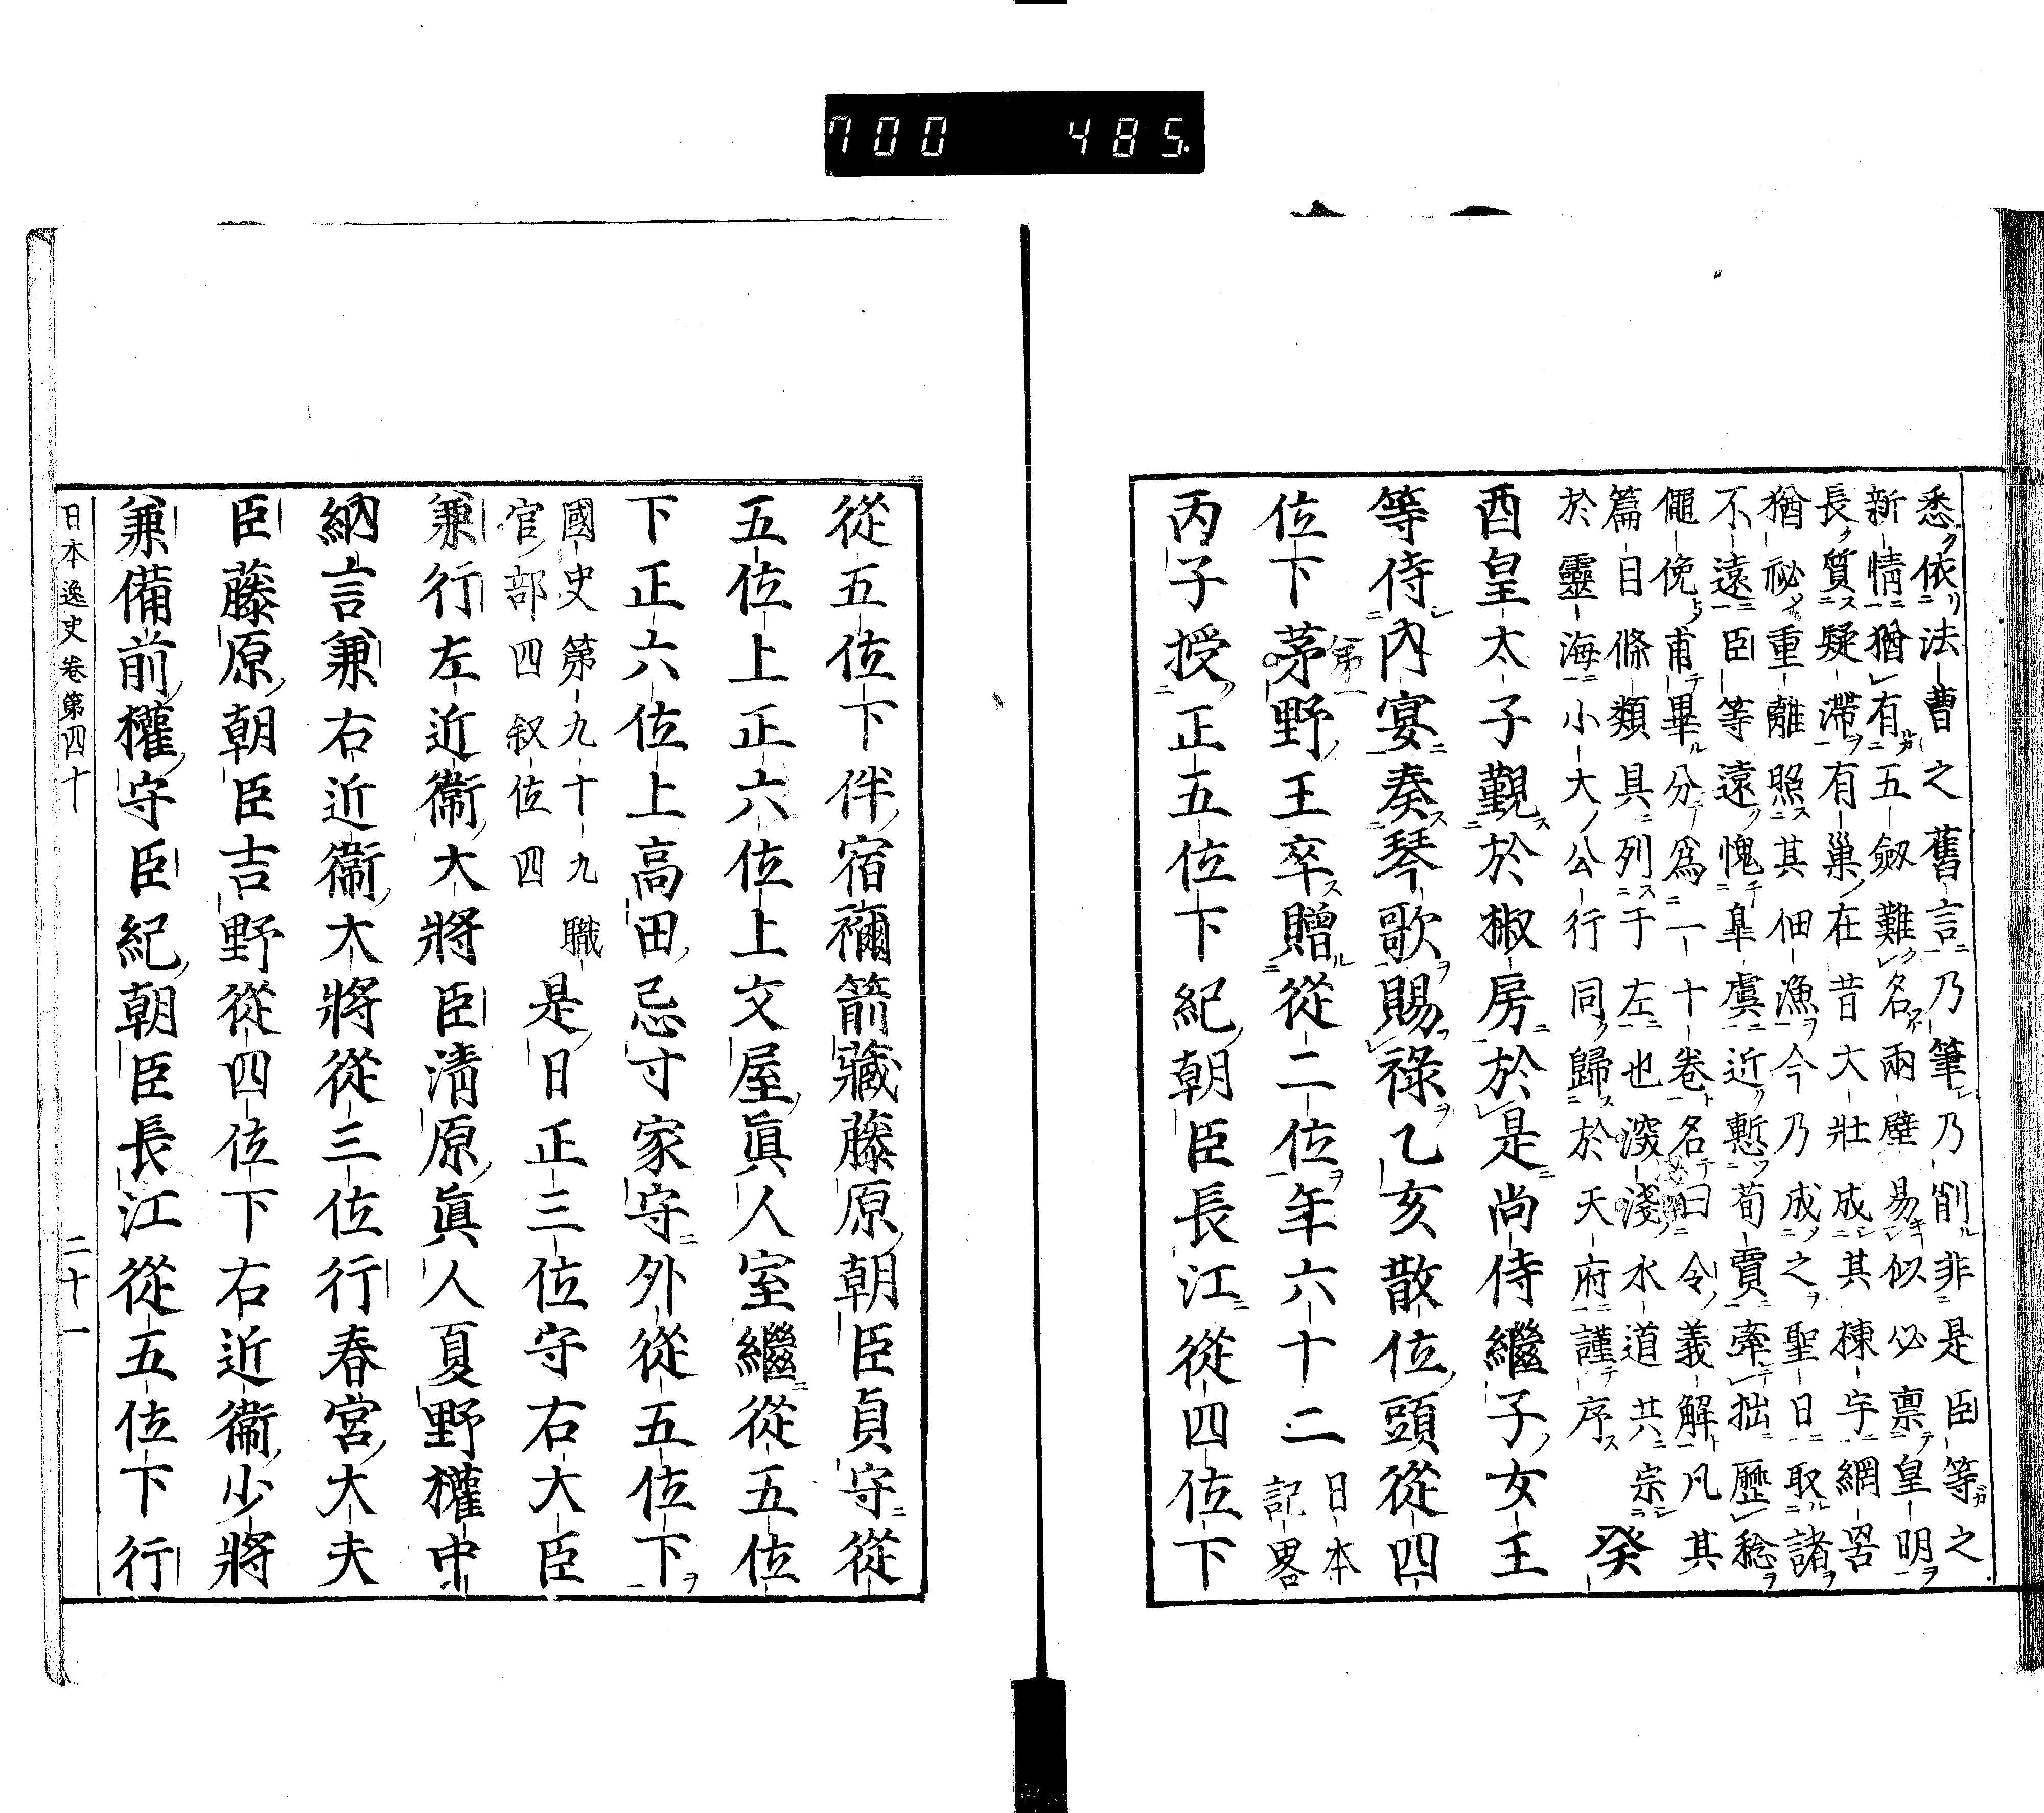 700 485
悉依法曹之舊言乃筆乃削非是臣等之
新情猶有五劔難名兩璧易似必禀皇明
長質疑滯有巢在昔大壯成其棟宇網罟
猶祕重離照其佃漁今乃成之聖日取諸
不遠臣等遠愧皐虞近慙荀賈牽拙歷稔
僶俛甫畢分爲一十卷名曰令義解凡其
篇目條類具列于左也濬淺水道共宗
於靈海小大公行同歸於天府謹序
癸
酉皇太子覲於椒房於是尚侍繼子女王
等侍內宴奏琴歌賜祿乙亥散位頭從四
位下茅野王卒贈從二位年六十二日本
記畧
第
丙子授正五位下紀朝臣長江從四位下
從五位下伴宿禰箭藏藤原朝臣貞守從
五位上正六位上文屋眞人室繼從五位
下正六位上高田忌寸家守外從五位下
國史第九十九職
官部四叙位四
是日正三位守右大臣
兼行左近衞大將臣清原眞人夏野權中
納言兼右近衞大將從三位行春宮大夫
臣藤原朝臣吉野從四位下右近衞少將
兼備前權守臣紀朝臣長江從五位下行
日本逸史卷第四十 二十一